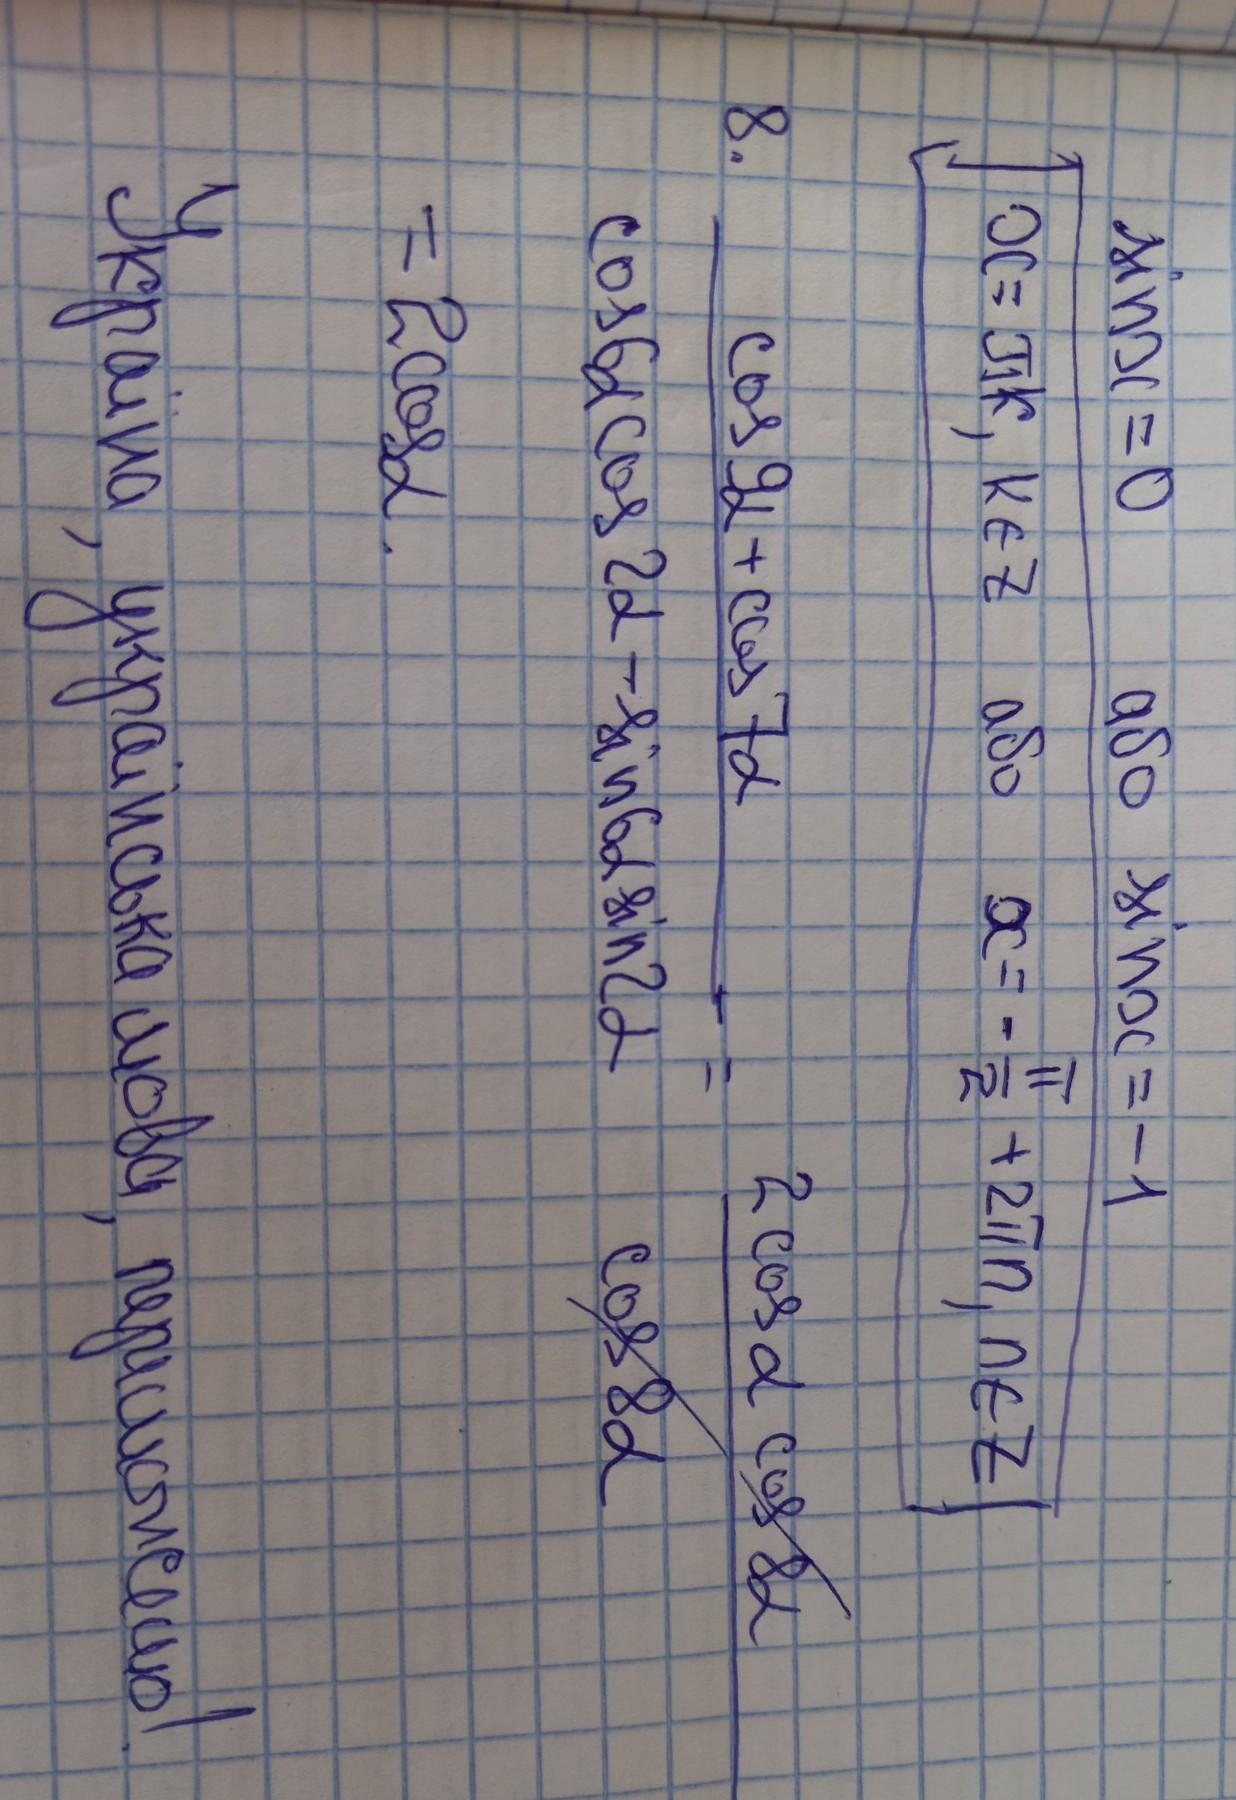 sinx = 0 або sinx = -1
x = πk, k∈Z або x = -π/2 + 2πn, n∈Z
8. (cos9α + cos7α)/(cos6α cos2α - sin6α sin2α) = (2cosα cos8α)/(cos8α)
= 2cosα.
Україна, українська мова, переможемо!